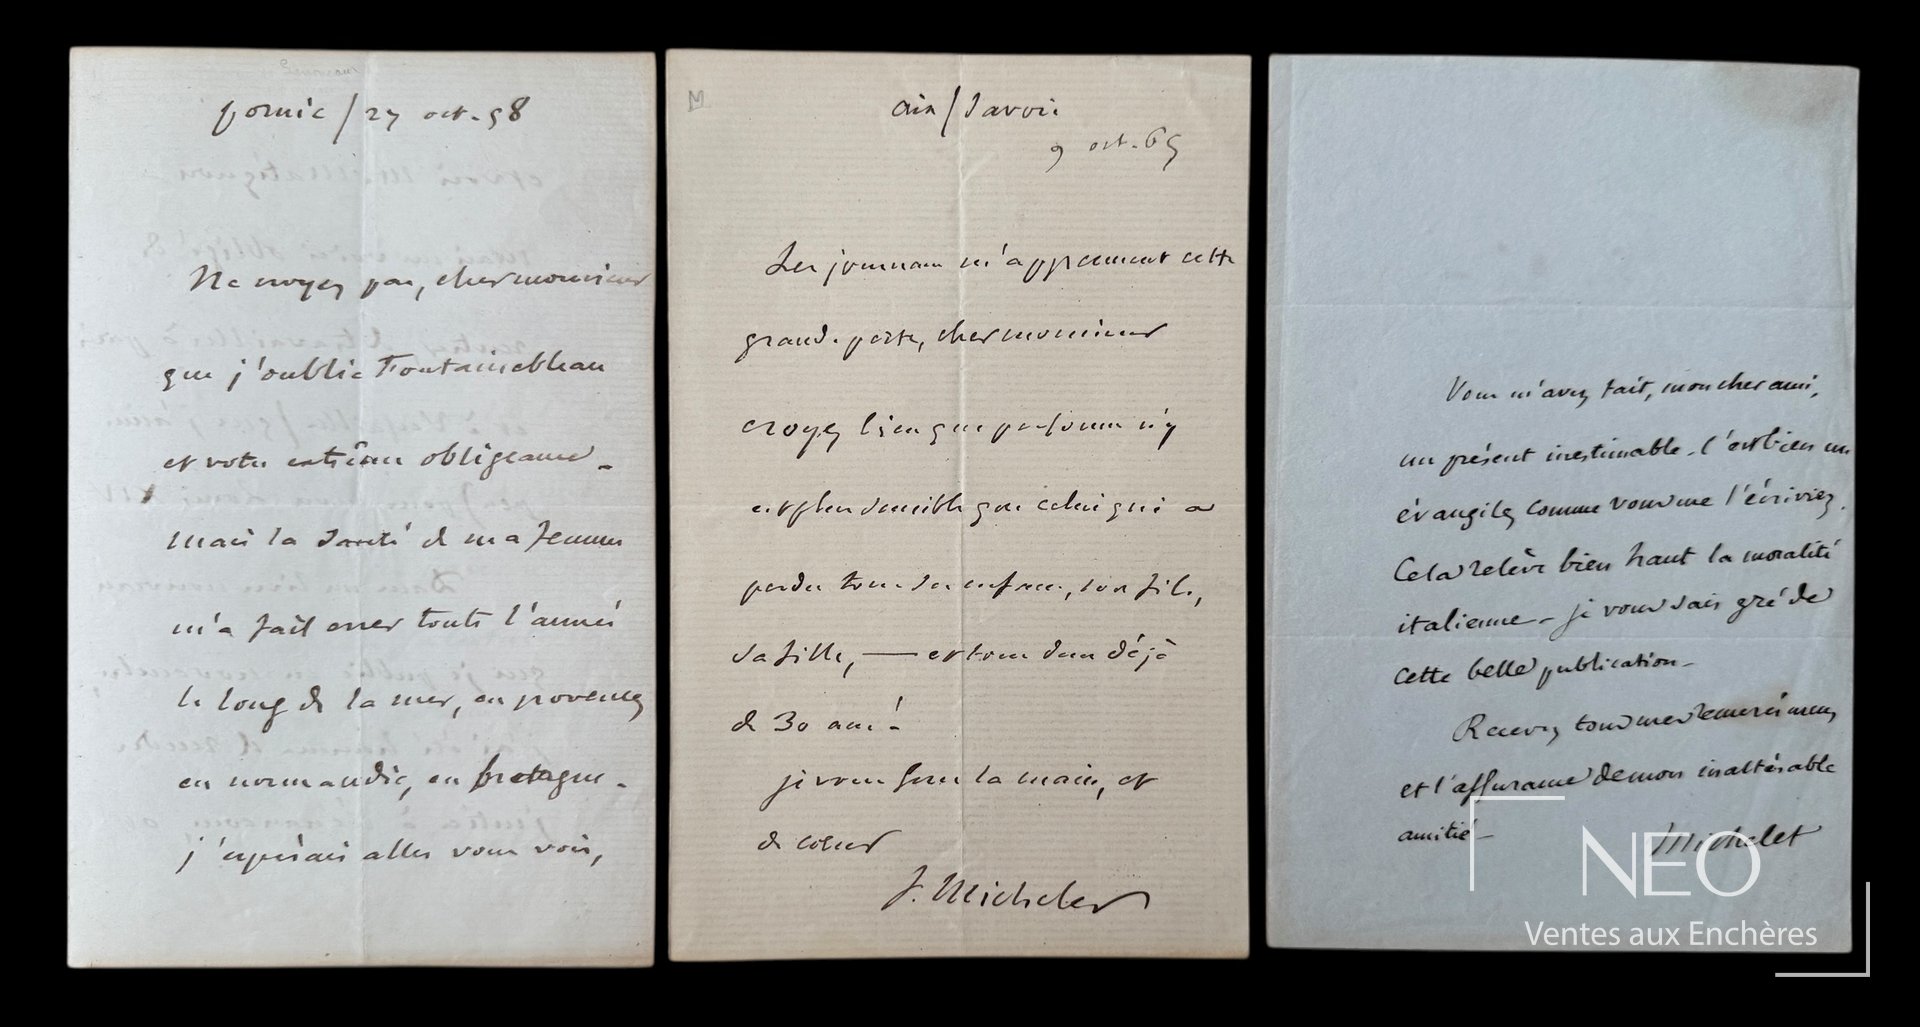 pornic / 27 oct. 58
Ne croyez pas, cher monsieur
que j'oublie Fontainebleau
et votre extrême obligeance.
mais la santé de ma femme
m'a fait errer toute l'année
le long de la mer, en provence,
en normandie, en bretagne.
j'espérais aller vous voir,
M
aix / Savoie
9 oct. 65
Les journaux m'apprennent cette
grande perte, cher monsieur
croyez bien que personne n'y
est plus sensible que celui qui a
perdu tous ses enfans, son fils,
sa fille, — et tous deux déjà
de 30 ans! -
je vous serre la main, et
de coeur
J. Michelet
Vous m'avez fait, mon cher ami,
un présent inestimable. C'est bien un
évangile, comme vous me l'écriviez.
Cela relève bien haut la moralité
italienne - je vous sais gré de
cette belle publication -
Recevez tous mes remerciemens
et l'assurance de mon inaltérable
amitié -
Michelet
NEO
Ventes aux Enchères